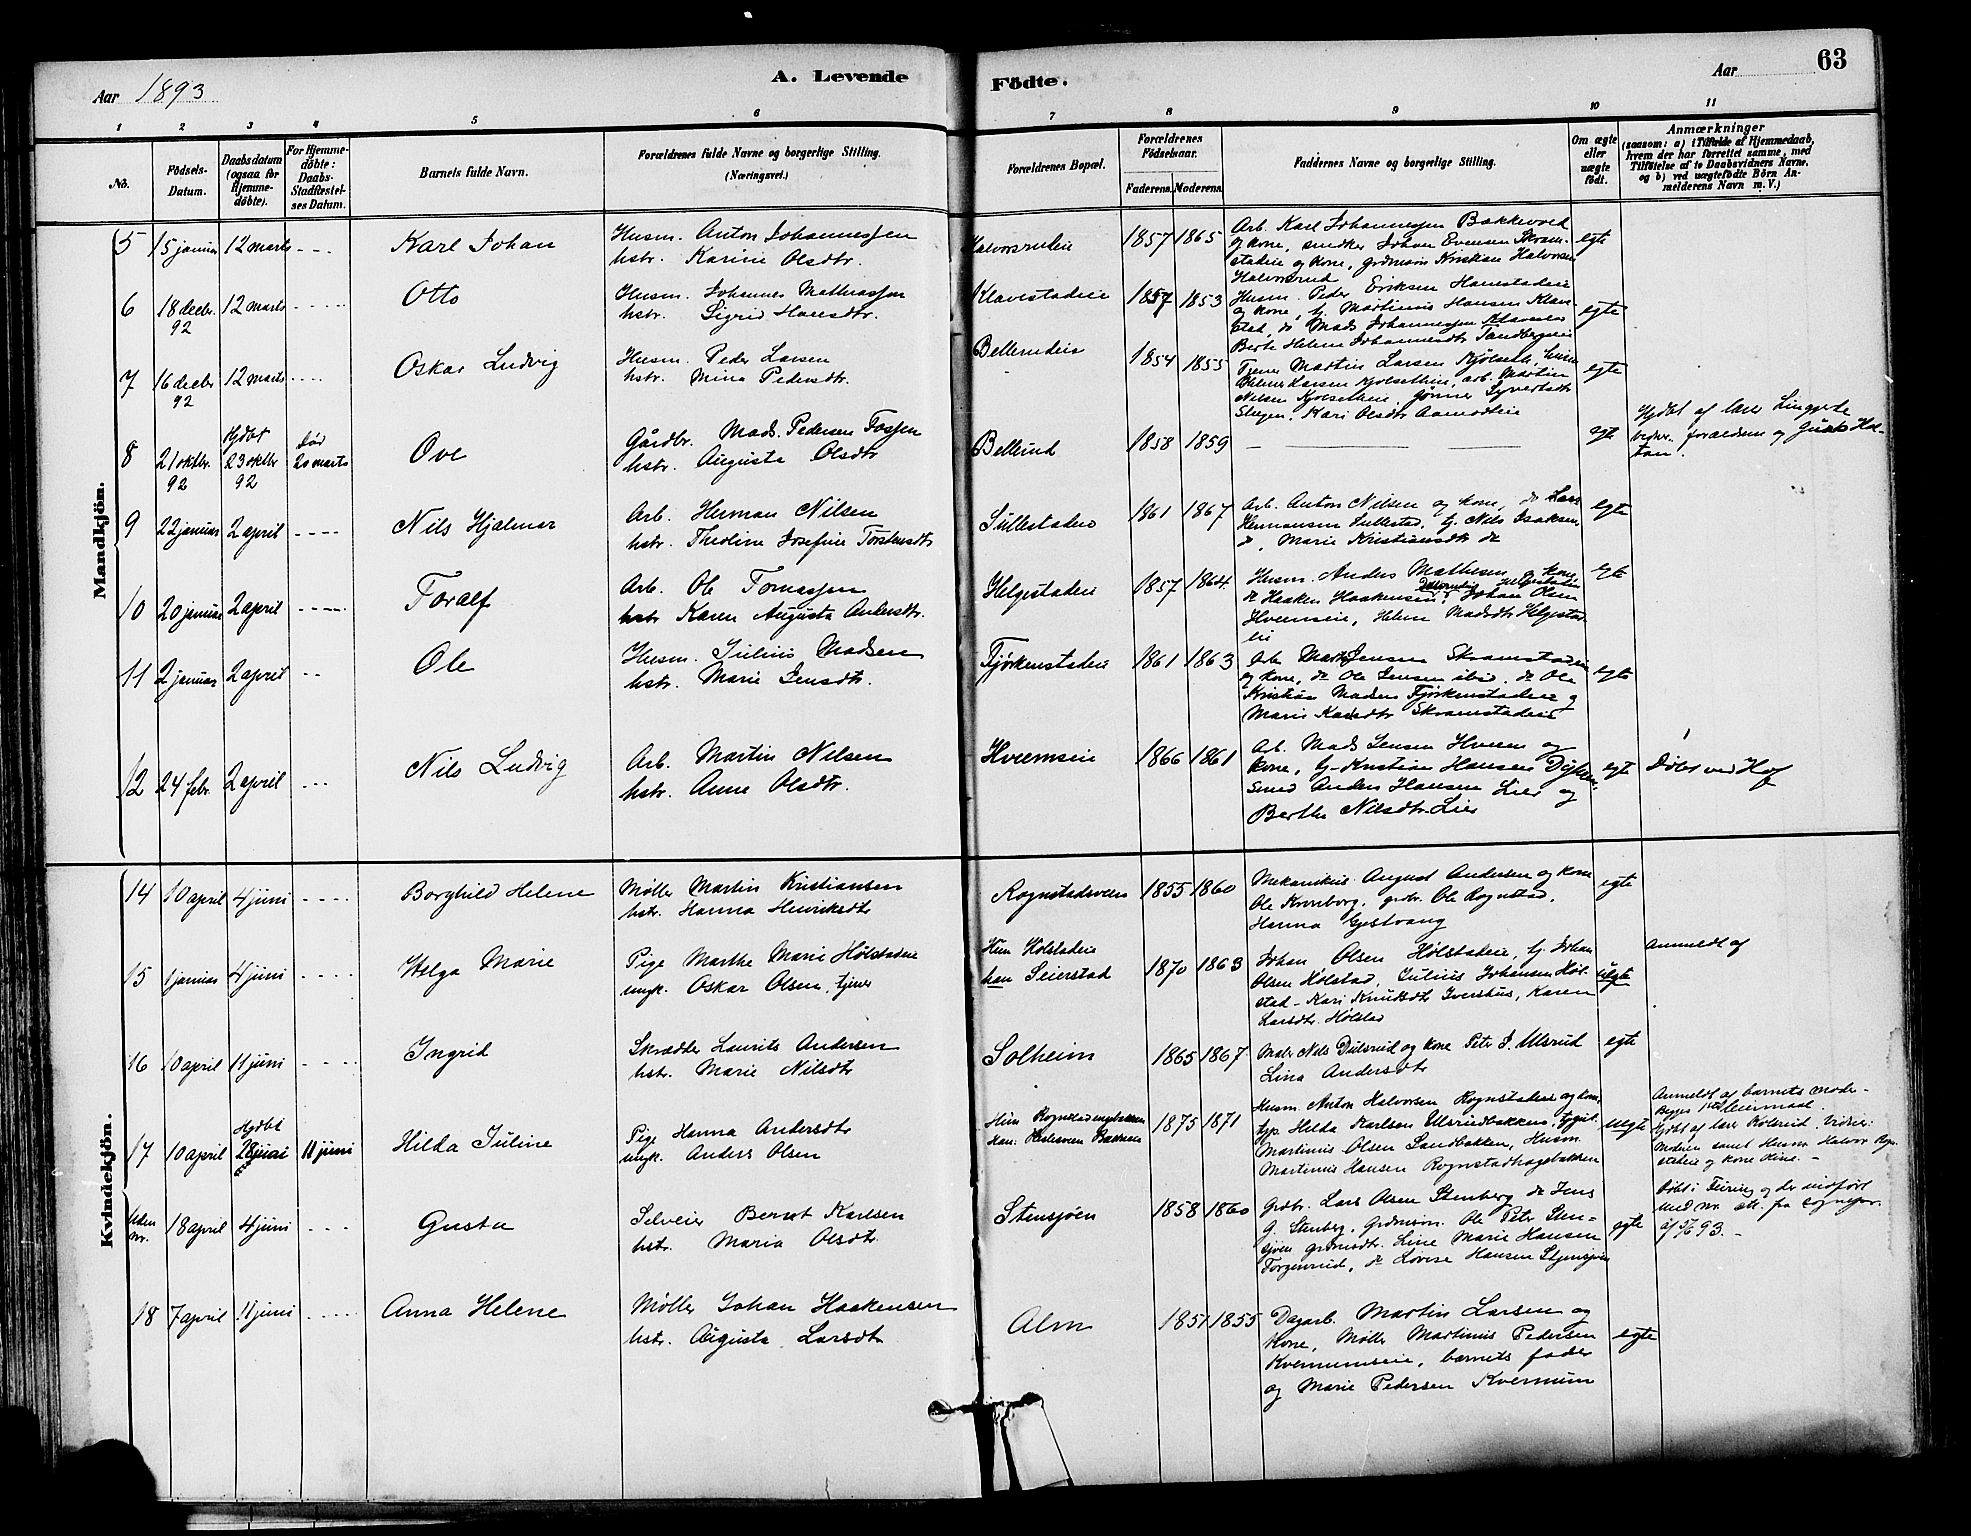 Aar 1893
A. Levende
Födte.
Aar
63
1 2 3 4 5 6 7 8 9 10 11
No.
Födsels-Datum.
Daabsdatum (ogsaa for Hjemmedöbte).
For Hjemmedöbte: Daabs-Stadfæstelses Datum.
Barnets fulde Navn.
Forældrenes fulde Navne og borgerlige Stilling. (Næringsvei.)
Forældrenes Bopæl.
Forældrenes Födselsaar.
Faderens. Moderens.
Faddernes Navne og borgerlige Stilling.
Om ægte eller uægte födt.
Anmærkninger (saasom: a) i Tilfælde af Hjemmedaab, hvem der har forrettet samme, med Tilföielse af to Daabsvidners Navne, og b) ved uægtefödte Börn Anmelderens Navn m. V.)
Mandkjön.
5 15 januar 12 marts Karl Johan
Husm. Anton Johannessen
hstr. Karine Olsdtr.
Halvorsrudeie 1857 1865
Arb. Karl Johannessen Bakkevold
og kone, snedker Johan Evensen Skram-
stadeie og kone, grdmsön Kristian Halvorsen
Halvorsrud
egte
6 18 decbr. 92 12 marts Otto
Husm. Johannes Mathiassen
hstr. Sigrid Hansdtr.
Klavestadeie 1857 1853
Husm. Peder Eriksen Hanestadeie
og kone, tj. Martinius Hansen Klave-
stad, do Mads Johannessen Klavestad
Berte Helene Johannesdtr Sandbergeie
egte
7 16 decbr 92 12 marts Oskar Ludvig
Husm. Peder Larsen
hstr. Mina Pedersdtr.
Bellerudeie 1854 1855
Tjener Martin Larsen Kjølseth, husm
Larsen Kjolsetheie, arb. Martin
Nilsen Kjolsetheie, Syvertsdtr
Kari Olsdtr Aamodteie
egte
8 21 oktbr. 92 Hjdbt 23 oktbr 92 20 marts Ove
Gårdbr. Mads Pedersen Fossen
hstr. Augusta Olsdtr
Bellerud 1858 1859
egte
Hjdbt af lærer
vidner. forældrene og
9 22 januar 2 april Nils Hjalmar
Arb. Herman Nilsen
hstr. Theoline Josefine Torstensdtr
Sullestadeie 1861 1867
Arb. Anton Nilsen og kone, do Lars
Hermansen Sullestad, tj. Nils Isaksen
do, Marie Kristiansdtr do
egte
10 20 januar 2 april Toralf
Arb. Ole Tomassen
hstr. Karen Augusta Andersdtr.
Helgestadeie 1857 1864
Husm. Anders Mathesen og kone,
do Haaken Haakensen, Johan Olsen
Hveemseie, Helene Madsdtr Helgestad-
eie
egte
11 2 januar 2 april Ole
Husm. Julius Madsen
hstr. Marie Jensdtr.
Fjørkenstadeie 1861 1863
Arb. Mads Jensen Skramstadeie
og kone, do Ole Jensen ibid. do Ole
Kristian Madsen Fjørkenstadeie og
Maria Karlsdtr Skramstadeie
egte
12 24 febr. 2 april Nils Ludvig
Arb. Martin Nilsen
hstr. Anne Olsdtr.
Hveemseie 1866 1861
Arb. Mads Jensen Hveem og
kone, tj. Kristian Hansen Dyhren,
smed Anders Hansen Lier og
Berthe Nilsdtr Lier
egte
Døbt ved Hof
Kvindekjön.
14 10 april 4 juni Borghild Helene
Møller Martin Kristiansen
hstr. Hanna Henriksdtr
Rognstadsveen 1855 1860
Mekanikus August Andersen og kone
Ole Kronborg, grdbr. Ole Rognstad,
Hanna Gjestvang
egte
15 1 januar 4 juni Helga Marie
Pige Marthe Marie Hølstadeie
ungk. Oskar Olsen, tjener
Hun Hølstadeie
han Seierstad
1870 1863
Johan Olsen Hølstadeie, tj. Johan
Olsen Hølstad, Julius Johansen Høl-
stad – Kari Knudsdtr Ivershus, Karen
Larsdtr. Hølstad
uegte
Anmeldt af
16 10 april 11 juni Ingrid
Skrædder Laurits Andersen
hstr. Marie Nilsdtr
Solheim 1865 1867
Maler Nils Dulsrud og kone Peter S. Ulsrud
Lina Andersdtr
egte
17 10 april Hjdbt 28 juni 11 juni Hilda Juline
Pige Hanna Andersdtr
ungk. Anders Olsen
Hun
han:
1875 1871
Husm. Anton Halvorsen Rognstadeie og kone,
Hilda Karlsen Ulsrudbakken,
Martinus Olsen Sandbakken, Husm
Martinus Hansen Rognstadhagebakken
uegte
Anmeldt af barnets moder
Begges 1ste leiermaal.
Hjdbt af lærer Kolsrud. Vidner:
Moderen samt Husm Halvor Rogn-
stadeie og kone Oline. –
Uden nr. 18 april 4 juni Gusta
Selveier Bernt Karlsen
hstr. Maria Olsdtr.
Stensjøen 1858 1860
Grdbr. Lars Olsen Stenberg, do Jens
G. Stenberg, Grdmsön. Ole Peter Sten-
sjøen grdmdtr. Line Marie Hansen
Torgunrud, do Lovise Hansen Stjensjøen
egte
Døbt i Feiring og der indført
med nr. att. fra sognepr.
af 5/6 93. –
18 7 april 11 juni Anna Helene
Møller Johan Haakensen
hstr. Augusta Larsdtr
Alm 1851 1855
Dagarb. Martin Larsen og
kone, Møller Martinus Pedersen
Kvernumseie, barnets fader
og Marie Pedersen Kvernum
egte